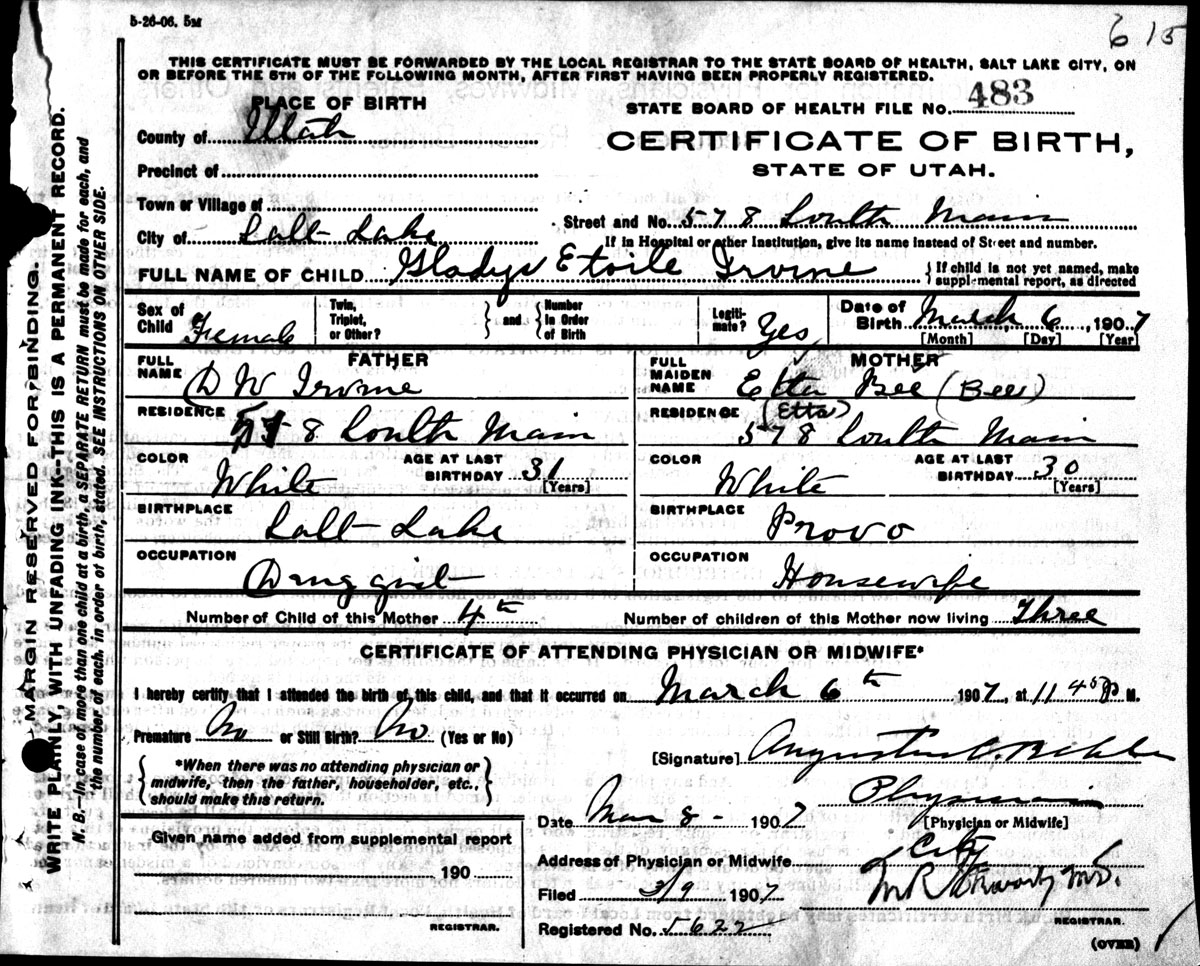 5-26-06. 5M
615
THIS CERTIFICATE MUST BE FORWARDED BY THE LOCAL REGISTRAR TO THE STATE BOARD OF HEALTH, SALT LAKE CITY, ON
OR BEFORE THE 5TH OF THE FOLLOWING MONTH, AFTER FIRST HAVING BEEN PROPERLY REGISTERED.
PLACE OF BIRTH
STATE BOARD OF HEALTH FILE No. 483
County of Utah
CERTIFICATE OF BIRTH,
STATE OF UTAH.
Precinct of
Town or Village of
Street and No. 578 South Main
City of Salt Lake
If in Hospital or other Institution, give its name instead of Street and number.
FULL NAME OF CHILD Gladys Etoile Irvine
{If child is not yet named, make
supplemental report, as directed
Sex of Child Female
Twin, Triplet, or Other? } and { Number In Order of Birth
Legitimate? Yes
Date of Birth March 6, 1907
[Month] [Day] [Year]
FATHER
FULL NAME D W Irvine
RESIDENCE 578 South Main
COLOR White
AGE AT LAST BIRTHDAY 31
[Years]
BIRTHPLACE
Salt Lake
OCCUPATION
Druggist
MOTHER
FULL MAIDEN NAME Etta Bee (Bee)
(Etta)
RESIDENCE
578 South Main
COLOR White
AGE AT LAST BIRTHDAY 30
[Years]
BIRTHPLACE
Provo
OCCUPATION
Housewife
Number of Child of this Mother 4th
Number of children of this Mother now living Three
CERTIFICATE OF ATTENDING PHYSICIAN OR MIDWIFE*
I hereby certify that I attended the birth of this child, and that it occurred on March 6th 1907, at 11 45 P M.
Premature No or Still Birth? No (Yes or No)
[Signature]
{*When there was no attending physician or
midwife, then the father, householder, etc.,
should make this return.}
Physician
[Physician or Midwife]
Date Mar 8 - 1907
Given name added from supplemental report
190
REGISTRAR.
Address of Physician or Midwife City
Filed 3/9 1907
REGISTRAR.
Registered No. 5622
(OVER)
MARGIN RESERVED FOR BINDING.
WRITE PLAINLY, WITH UNFADING INK--THIS IS A PERMANENT RECORD.
N. B.--In case of more than one child at a birth, a SEPARATE RETURN must be made for each, and
the number of each, in order of birth, stated. SEE INSTRUCTIONS ON OTHER SIDE.